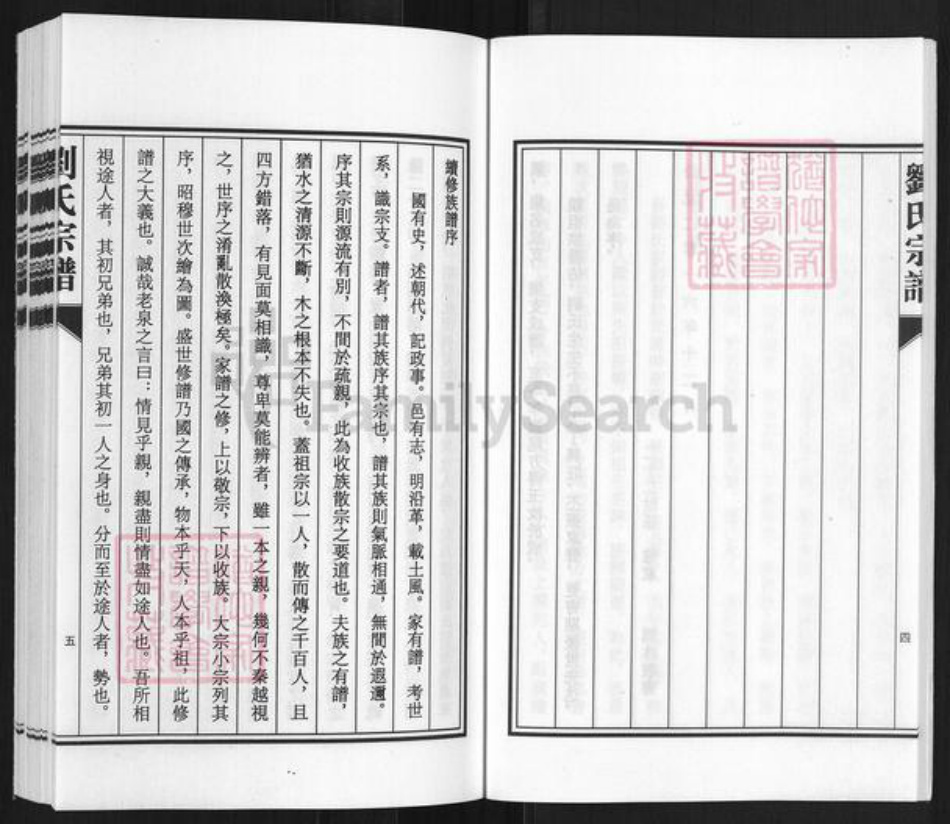 劉氏宗譜
四
續修族譜序
國有史，述朝代，記政事。邑有志，明沿革，載土風。家有譜，考世
系，識宗支。譜者，譜其族序其宗也，譜其族則氣脈相通，無間於遐邇。
序其宗則源流有別，不間於疏親，此為收族散宗之要道也。夫族之有譜，
猶水之清源不斷，木之根本不失也。蓋祖宗以一人，散而傳之千百人，且
四方錯落，有見面莫相識，尊卑莫能辨者，雖一本之親，幾何不秦越視
之，世序之淆亂散渙極矣。家譜之修，上以敬宗，下以收族。大宗小宗列其
序，昭穆世次繪為圖。盛世修譜乃國之傳承，物本乎天，人本乎祖，此修
譜之大義也。誠哉老泉之言曰：情見乎親，親盡則情盡如途人也。吾所相
視途人者，其初兄弟也，兄弟其初一人之身也。分而至於途人者，勢也。
劉氏宗譜
五
FamilySearch